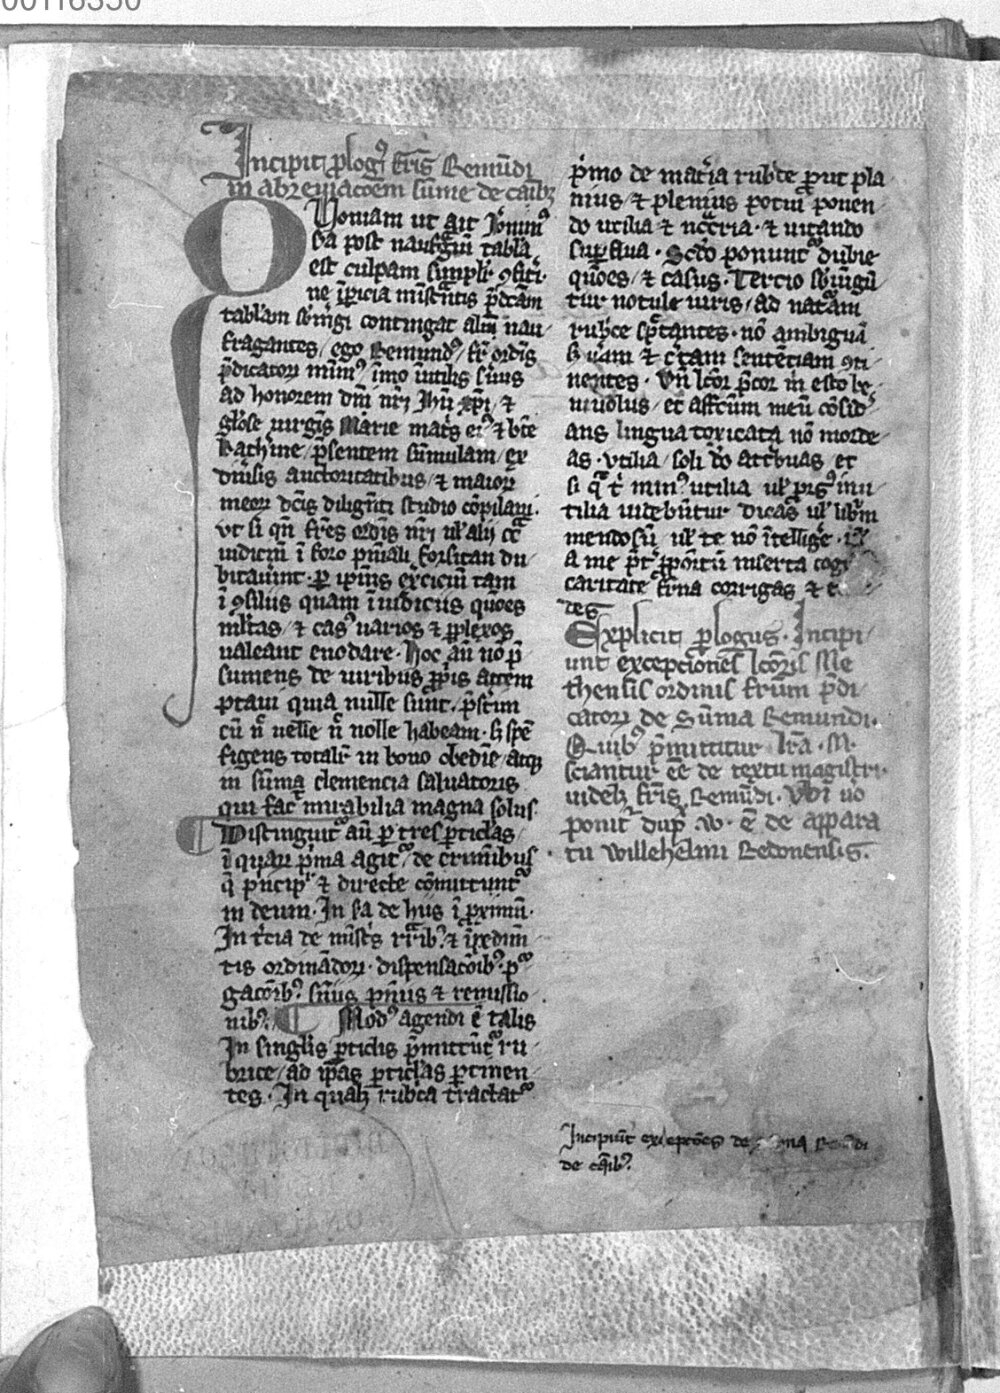 00116350
Incipit plogꝰ fris Remūdi
in abreuiacoem sūme de caibꝫ
Quoniam ut ait Ieronimꝰ
sa post naufgiū tabla
est culpam simplr ꝯfiti
ne īpicia mistrātis pdcām
tablam sbmgi contingat aliq̄ nau
fragantes / ego Remundꝰ / fr̄ ordis
p̄dicatoꝝ mīmꝰ īmo īutilis s̄uus
ad honorem dn̄i nr̄i Ihu xp̄i / ⁊
gl̄ose uirgīs Marie mat̄s eiꝰ ⁊ bt̄e
kath̄ine / p̄sentem sūmulam / ex
diūsis auctoritatibus / ⁊ maioꝝ
meoꝝ dc̄is diligēti studio cōpilaui.
vt si qn̄ fr̄es ordīs nr̄i ul̓ alij cc̄a
iudiciū ī foro pn̄iali forsitan du
bitauīnt. ꝑ ip̄ius ex̄ciciū tam
ī ꝯsiliis quam ī iudiciis qōnes
ml̄tas / ⁊ casꝰ uarios ⁊ ꝑplexos
ualeant enodare. hoc aū nō p̄
sumens de uiribus ꝓpiis attem
ptaui quia nulle sunt. p̄s̄tim
cū n̄ uelle n̄ nolle habeam. sꝫ spē
figens totalr̄ in bono obedīe / atqꝫ
in sūma clemencia saluatoris
qui fac̄ mirabilia magna solus.
Distinguit̄ aū ꝑ tres ꝑticl̄as /
ī quaꝝ p̄ma agit̄ de criminibus
q̄ pn̄cipr̄ ⁊ directe cōmittunt̄
in deum. In sa de hiis ī ꝓximū.
In t̄cia de mist̄s irr̄ibꝰ. ⁊ īpedim
tis ordinādoꝝ. dispensacōibꝰ. pur
gacōibꝰ. sn̄iis. pn̄iis ⁊ remissio
nibꝰ. Modꝰ agendi ē talis
In singlis ꝑticl̄is p̄mittūt̄ ru
brice / ad ip̄as ꝑticl̄as ꝑtinen
tes. In qualꝫ rubca tractat̄
p̄imo de mat̄ia rubce prout pla
nius / ⁊ plenius potui ponen
do utilia ⁊ nccria. ⁊ uitando
suꝑflua. Scdo ponunt̄ dubie
qōnes / ⁊ casus. Tercio sbiūgū
tur notule iuris / ad nat̄am
rubce spectantes. nō ambiguā
sꝫ uam ⁊ c̄tam sentēciam ꝯti
nentes. Vn̄ lc̄or p̄cor in esto be
niuolus / et affc̄um meū cōsid̓
ans lingua toxicata nō morde
as. vtilia / soli do attbuas et
si q̄ t̓ minꝰ utilia ul̓ prsꝰ inu
tilia uidebūtur dicas ul̓ libm
mendosū ul̓ te nō ītellig̓e.
a me pt̄ ꝓpoitū inserta cog
caritate frna corrigas ⁊
des
Explicit plogus. Incipi
unt excepciones lc̄oris Me
thensis ordinis frūm p̄di
catoꝝ de Sūma Remundi.
Quibꝰ p̄mittitur lr̄a .R.
sciantur ēē de textu magistri.
uidelꝫ fris Remūdi. Vbi uo
ponit̄ dup̄ .w. ē de appara
tu Willehelmi Redonensis.
Incipiūt excepcōes de Remūdi
de caibꝰ.